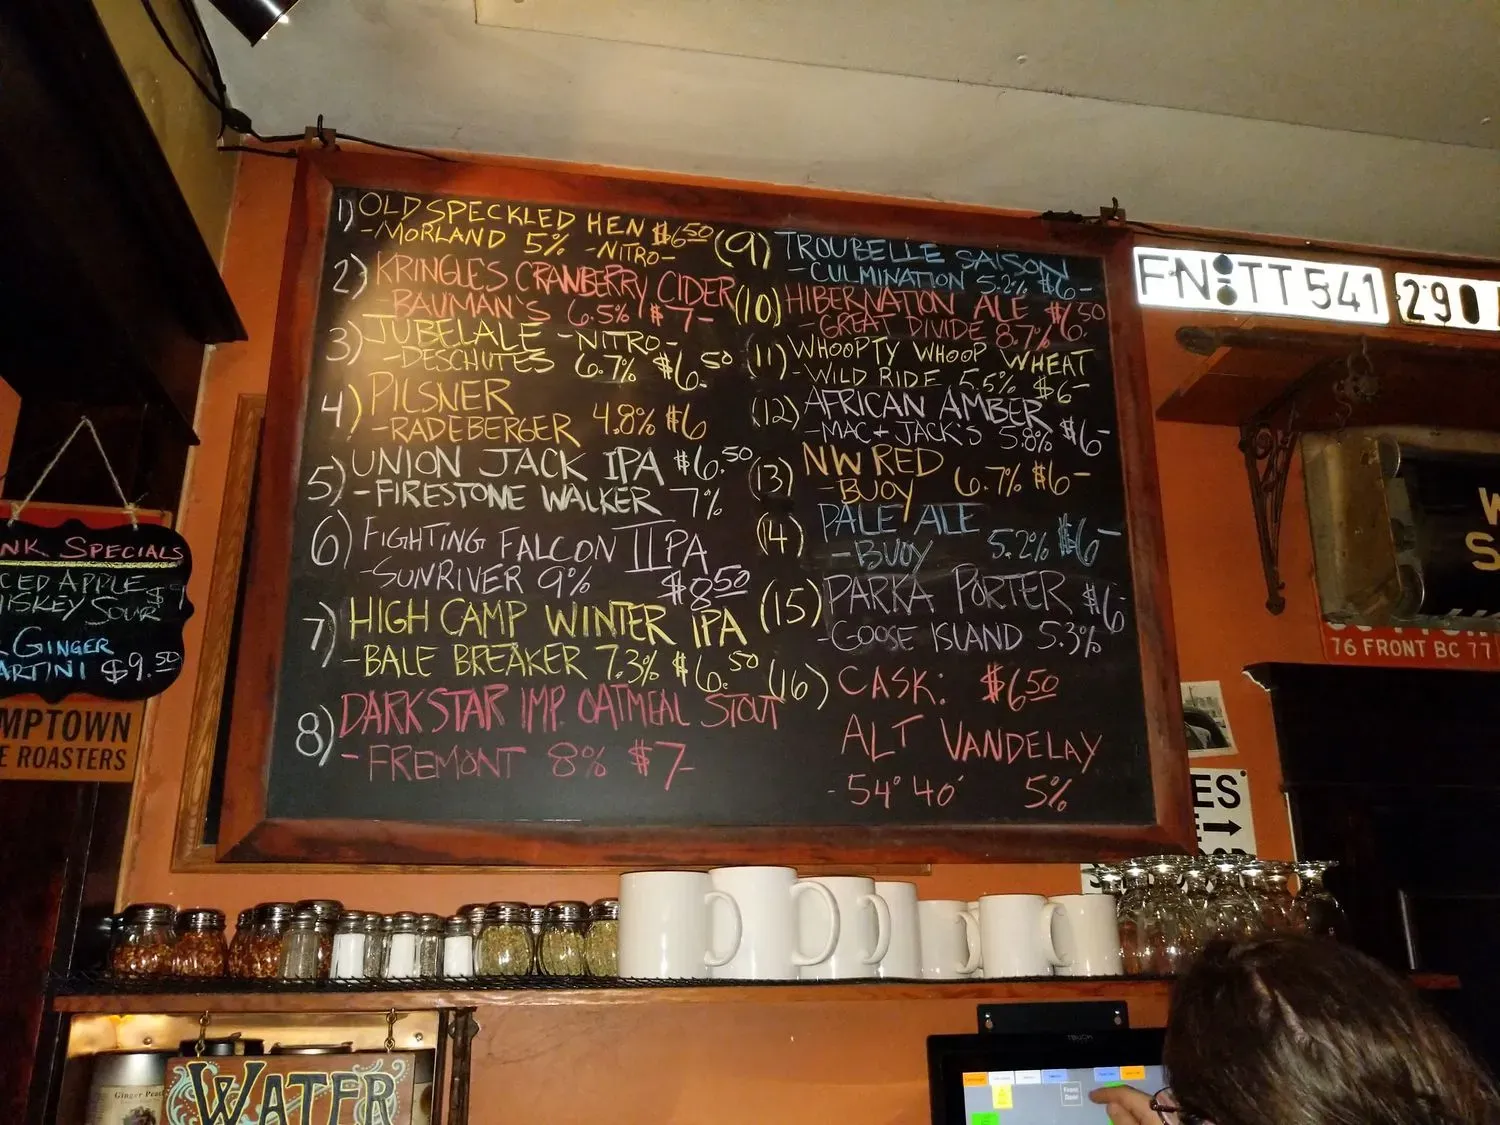 1) OLD SPECKLED HEN $6.50
-MORLAND 5% -NITRO-
2) KRINGLES CRANBERRY CIDER
-BAUMAN'S 6.5% $7-
3) JUBELALE -NITRO-
-DESCHUTES 6.7% $6.50
4) PILSNER
-RADEBERGER 4.8% $6
5) UNION JACK IPA $6.50
-FIRESTONE WALKER 7%
6) FIGHTING FALCON IIPA
-SUNRIVER 9% $8.50
7) HIGH CAMP WINTER IPA
-BALE BREAKER 7.3% $6.50
8) DARKSTAR IMP. OATMEAL STOUT
-FREMONT 8% $7-
(9) TROUBELLE SAISON
-CULMINATION 5.2% $6-
(10) HIBERNATION ALE $6.50
-GREAT DIVIDE 8.7%
(11) WHOOPTY WHOOP WHEAT
-WILD RIDE 5.5% $6-
(12) AFRICAN AMBER $6-
-MAC + JACK'S 5.8%
(13) NW RED 6.7% $6-
-BUOY
(14) PALE ALE
-BUOY 5.2% $6-
(15) PARKA PORTER $6-
-GOOSE ISLAND 5.3%
(16) CASK: $6.50
ALT VANDELAY
-54° 40' 5%
FN TT 541
290
76 FRONT BC 77
NK SPECIALS
CED APPLE
HISKEY SOUR $9
GINGER
ARTINI $9.50
MPTOWN
E ROASTERS
ES
WATER
Ginger Peach